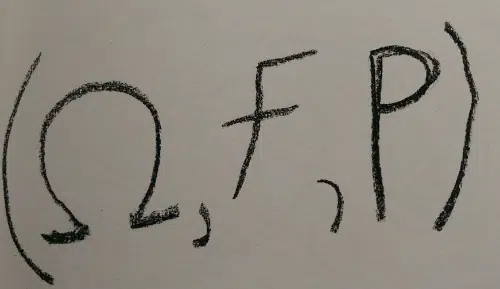 (Ω, F, P)